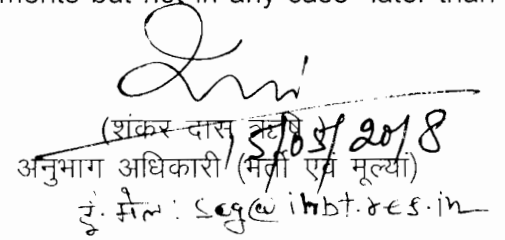 ments but not in any case later than
(शंकर दास ऋषि)
/05/2018
अनुभाग अधिकारी (भर्ती एवं मूल्यां)
ई. मेल: @ihbt.res.in